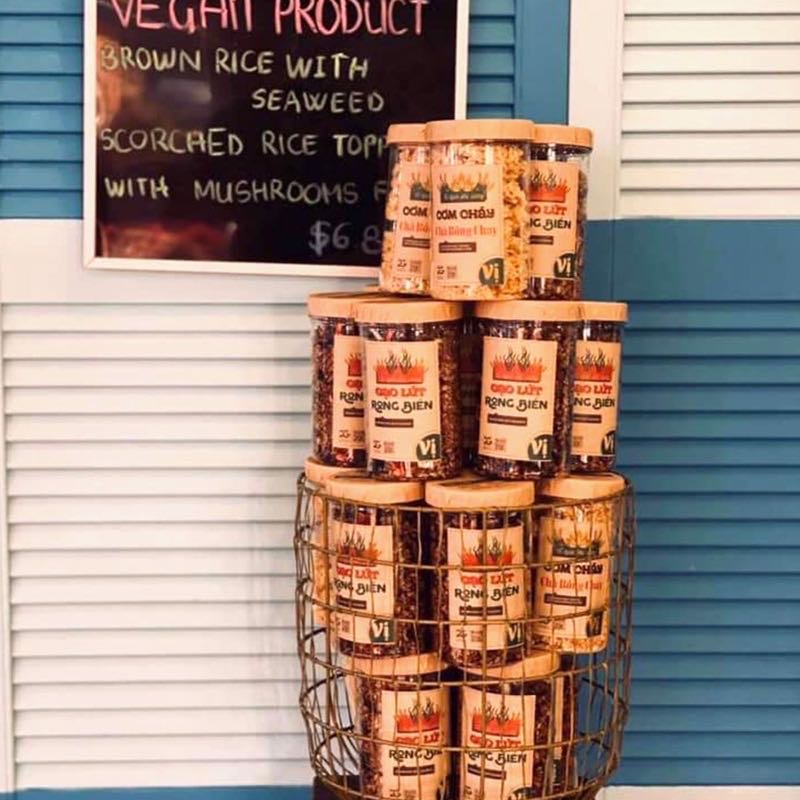 VEGAN PRODUCT
BROWN RICE WITH
SEAWEED
SCORCHED RICE TOPP
WITH MUSHROOMS F
$6.8
CƠM CHÁY
Chà Bông Chay
Vị
LỨT
BIỂN
Vị
GẠO LỨT
RONG BIỂN
Vị
GẠO LỨT
RONG BIỂN
Vị
GẠO LỨT
RONG BIỂN
GẠO LỨT
RONG BIỂN
Vị
GẠO LỨT
RONG BIỂN
Vị
CƠM CHÁY
Chà Bông Chay
Vị
GẠO LỨT
RONG BIỂN
GẠO LỨT
RONG BIỂN
Vị